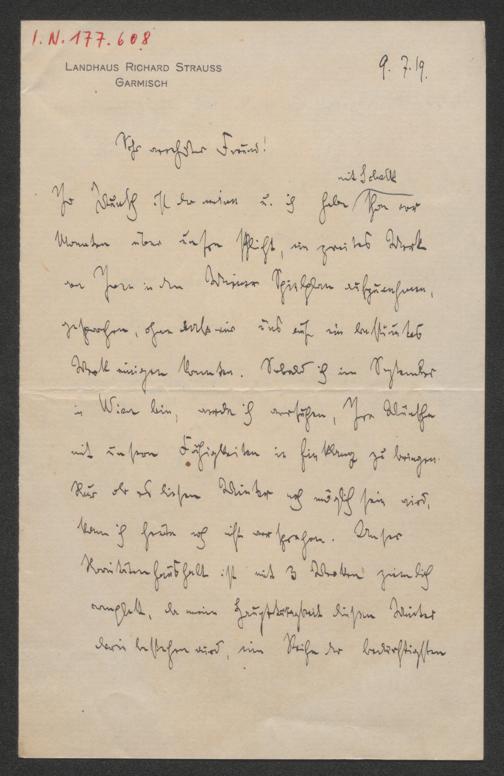 I.N. 177.608
LANDHAUS RICHARD STRAUSS
GARMISCH
9. 7. 19.
Sehr verehrter Freund!
mit Schalk
Ihr Wunsch ist der meine u. ich habe schon vor
Monaten über unsere Pflicht, ein zweites Werk
von Ihnen in den Wiener Spielplan aufzunehmen,
gesprochen, ohne dass wir uns auf ein bestimmtes
Werk einigen konnten. Sobald ich im September
in Wien bin, werde ich versuchen, Ihre Wünsche
mit unseren Fähigkeiten in Einklang zu bringen.
Nur ob es diesen Winter noch möglich sein wird,
kann ich heute noch nicht versprechen. Unser
Novitätenhaushalt ist mit 3 Werken ziemlich
complett, da meine Hauptthätigkeit diesen Winter
darin bestehen wird, eine Reihe der bedürftigsten